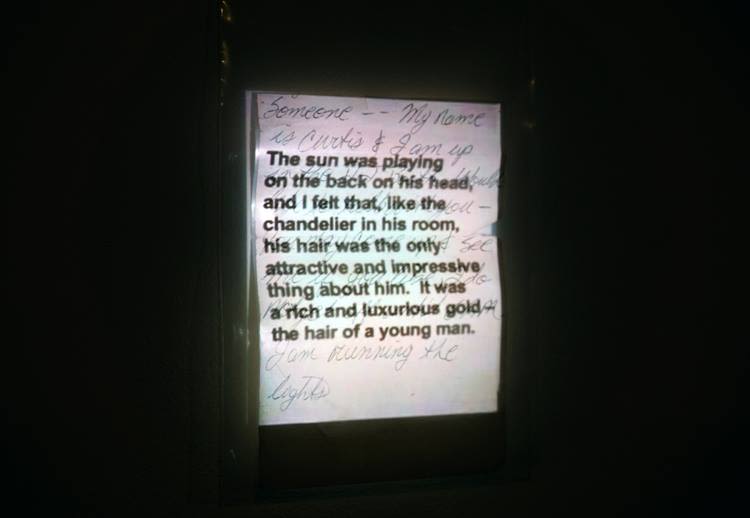 Someone -- My name
is Curtis & I am up
The sun was playing
on the back on his head,
and I felt that, like the
you -
chandelier in his room,
his hair was the only
see
attractive and impressive
do
thing about him. It was
a rich and luxurious gold -
the hair of a young man.
I am running the
lights